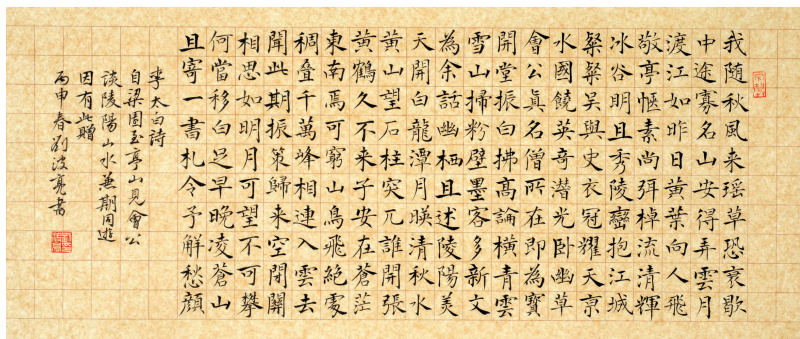 我随秋風来瑶草恐衰歇
中途寡名山安得弄雲月
渡江如昨日黃葉向人飛
敬亭愜素尚弭棹流清輝
冰谷明且秀陵巒抱江城
粲粲吴與史衣冠耀天京
水國饒英奇潜光卧幽草
會公真名僧所在即為寶
開堂振白拂高論橫青雲
雪山掃粉壁墨客多新文
為余話幽栖且述陵陽美
天開白龍潭月暎清秋水
黄山望石柱突兀誰開張
黄鶴久不来子安在蒼茫
東南焉可窮山鳥飛絶處
稠叠千萬峰相連入雲去
聞此期振策歸来空閉關
相思如明月可望不可攀
何當移白足早晚凌蒼山
且寄一書札令予解愁顔
李太白詩
自梁園至亭山見會公
談陵陽山水兼期同遊
因有此贈
丙申春劉波亮書